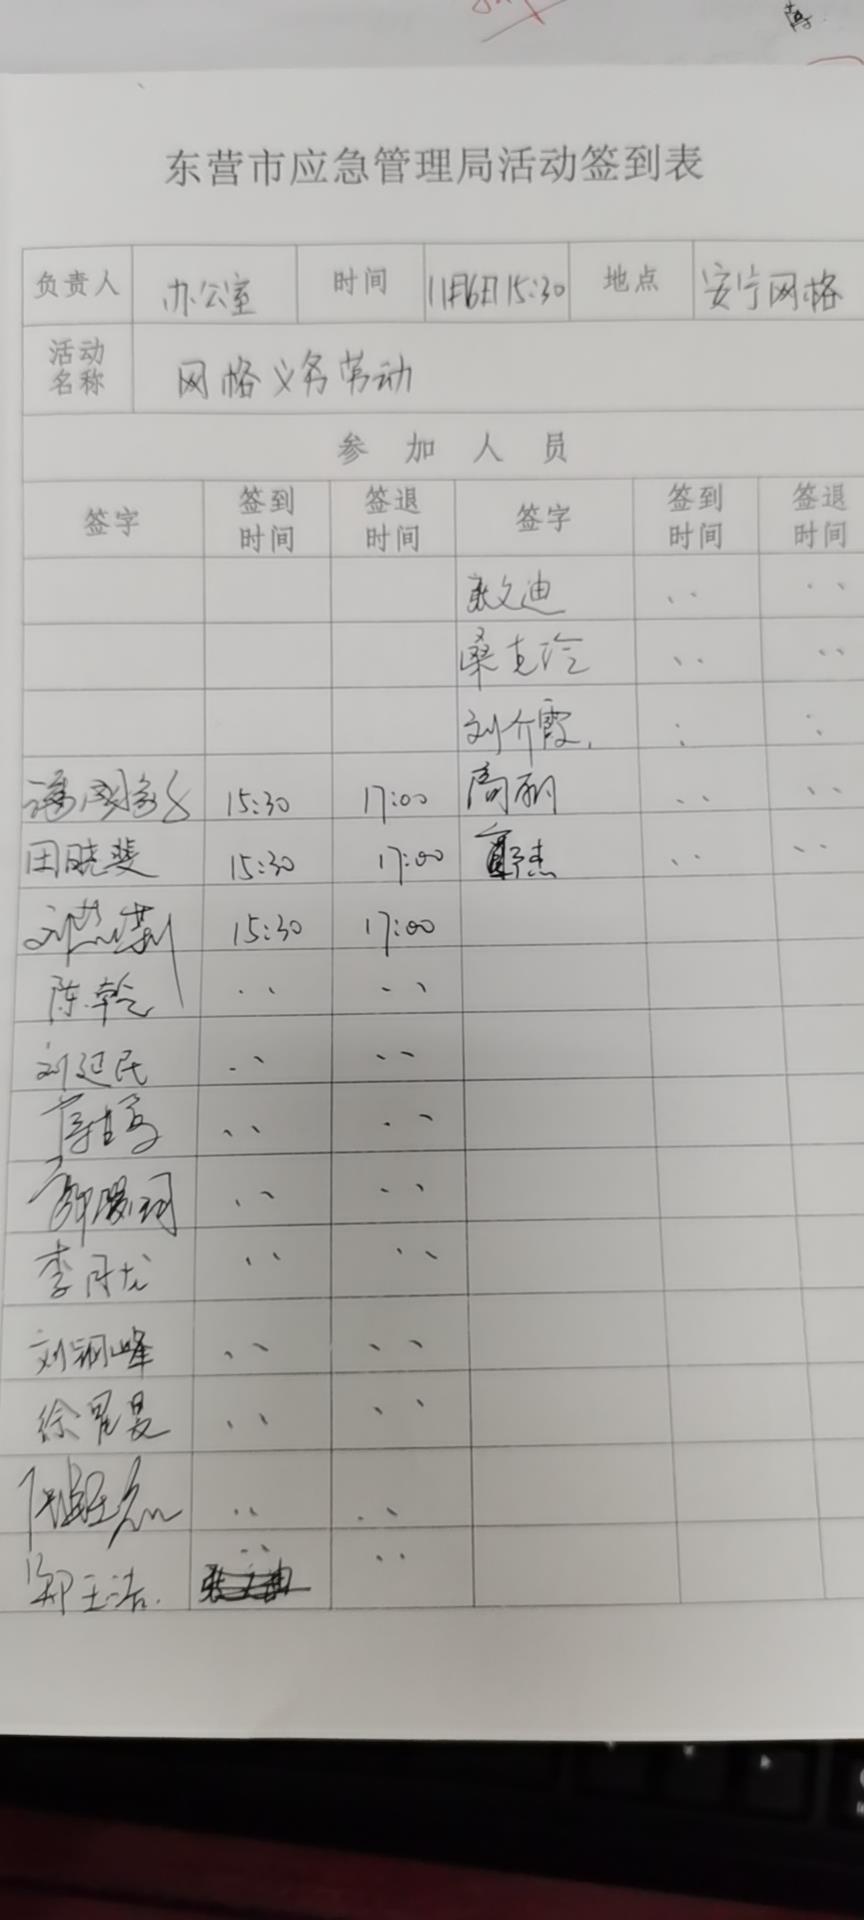 东营市应急管理局活动签到表
负责人 办公室 时间 11月6日15:30 地点 安宁网格
活动名称 网格义务劳动
参加人员
签字 签到时间 签退时间 签字 签到时间 签退时间
张文迪 、、 、、
桑克玲 、、 、、
刘介霞. 、、 、、
15:30 17:00 周丽 、、 、、
田晓斐 15:30 17:00 、、 、、
15:30 17:00
陈乾 、、 、、
刘延民 、、 、、
、、 、、
、、 、、
李丹龙 、、 、、
刘钢峰 、、 、、
徐星昊 、、 、、
、、 、、
郑玉浩. 、、 、、